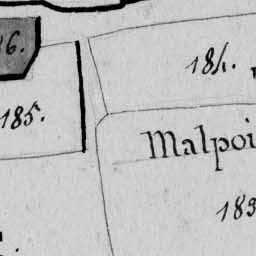 184.
185.
Malpoi
183